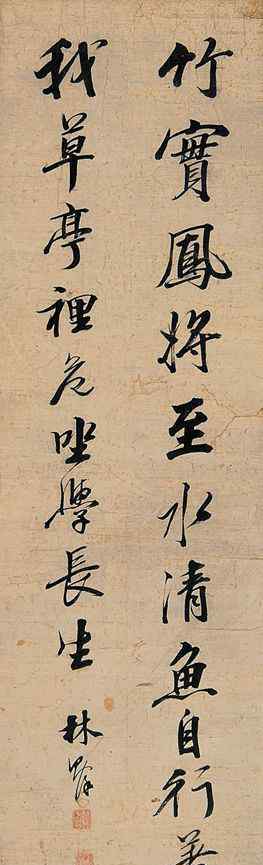 竹實鳳將至水清魚自行
我草亭裡危坐學長生
林